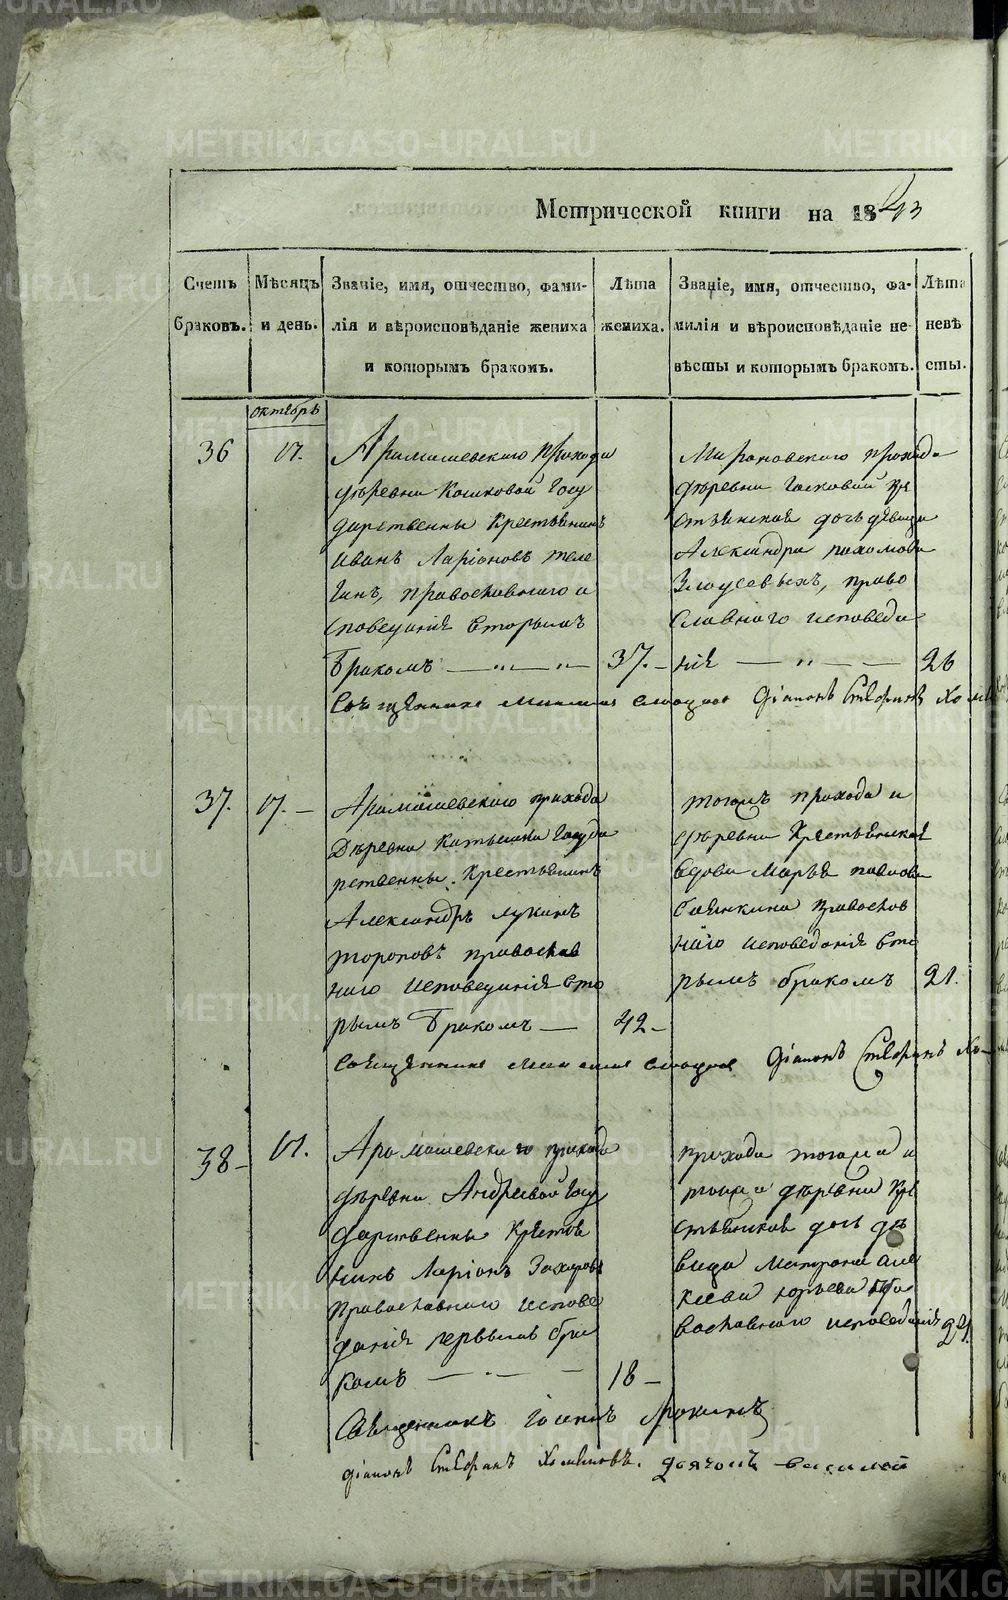 Метрической книги на 1843
Счетъ браковъ.
Мѣсяцъ и день.
Званіе, имя, отчество, фами-
лія и вѣроисповѣданіе жениха
и которымъ бракомъ.
Лѣта жениха.
Званіе, имя, отчество, фа-
милія и вѣроисповѣданіе не-
вѣсты и которымъ бракомъ.
Лѣта невѣ сты.
октебрь
36
17.
Арамашевскаго прихода
деревни Косиковой Госу
дарственны Крестьенинъ
Иванъ Ларіоновъ Теле
гинъ, православнаго и
споведанія вторымъ
бракомъ — „ — „ — 37. —
Мироновскаго прихода
деревни
дочь девица
Александра пахомова
право
славнаго исповеда
ніе — „ — — 26
Священникъ Діаконъ Стефанъ
37.
17. —
Арамашевскаго прихода
Деревни Катышки Госуда
рственны Крестьенинъ
Александръ лукинъ
тороповъ православ
наго исповеданія вто
рымъ бракомъ — 42 —
тогожъ прихода и
деревни Крестьенская
вдова Марья павлова
православ
наго исповеданія вто
рымъ бракомъ 21.
Священникъ Діаконъ Стефанъ
38 —
17.
Арамашевскаго прихода
деревни Андреевой Госу
дарственны Крестье
нинъ Ларіонъ Захаровъ
православнаго испове
данія первымъ бра
комъ — „ — 18 —
прихода тогожа и
тоижа деревни Кре
стьенская дочь де
вица Матрона але
ксеева юрьева пра
вославнаго исповеданія 21.
Священникъ Іоаннъ
діаконъ Стефанъ Хомяковъ. дьячокъ василей
METRIKI.GASO-URAL.RU